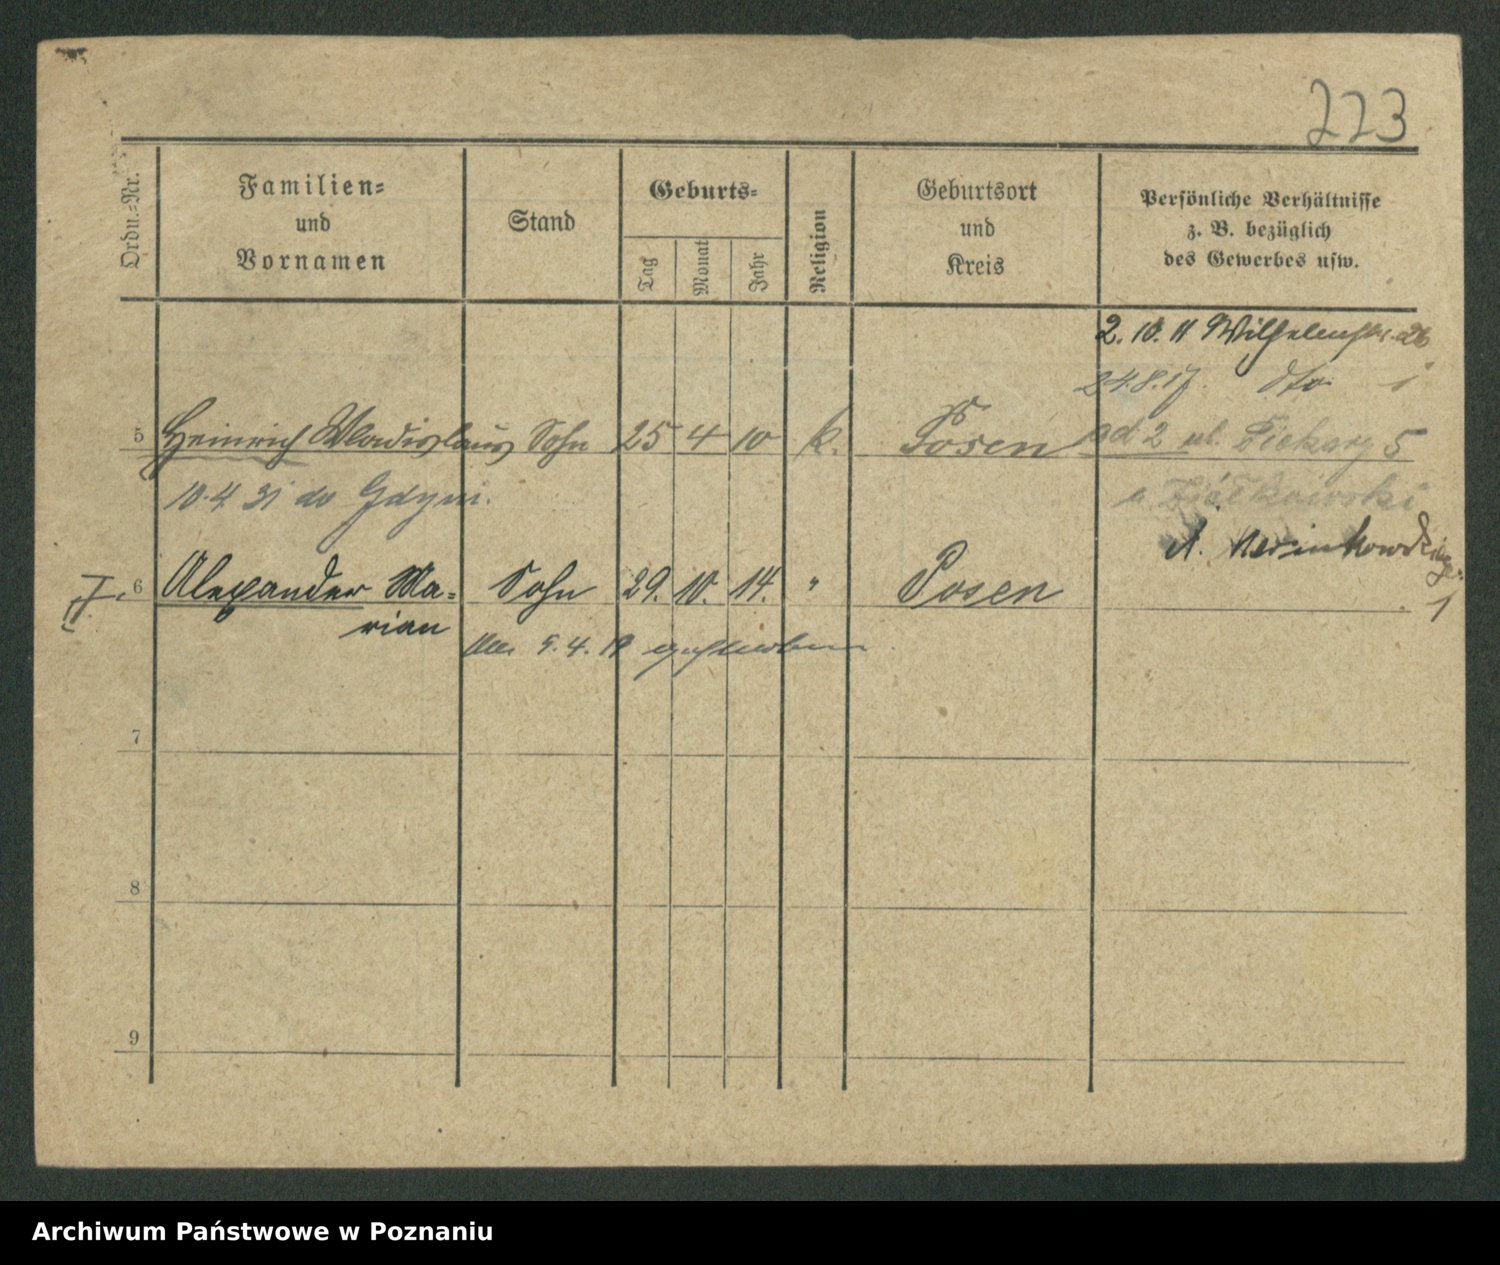 223
Ordn.-Nr.
Familien-
und
Vornamen
Stand
Geburts-
Tag
Monat
Jahr
Religion
Geburtsort
und
Kreis
Persönliche Verhältnisse
z. B. bezüglich
des Gewerbes usw.
2. 10. 11 Wilhelmstr. 26
24.8.17. dto.
5 Heinrich Wladislaus Sohn 25 4 10 k. Posen ad 2 ul. Piekary 5
10.4.31 do Gdyni.
6 Alexander Ma-
rian
Sohn 29. 10. 14. " Posen
9. 4. 19
7
8
9
Archiwum Państwowe w Poznaniu